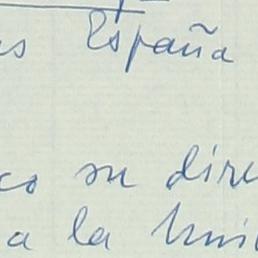 es España
co su dire
a la Uni